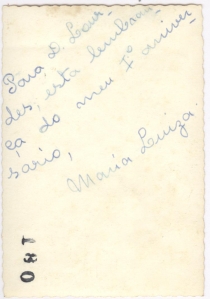 Para D. Lour-
des, esta lembran-
ça do meu 1º aniver-
sário,
Maria Luiza.
180